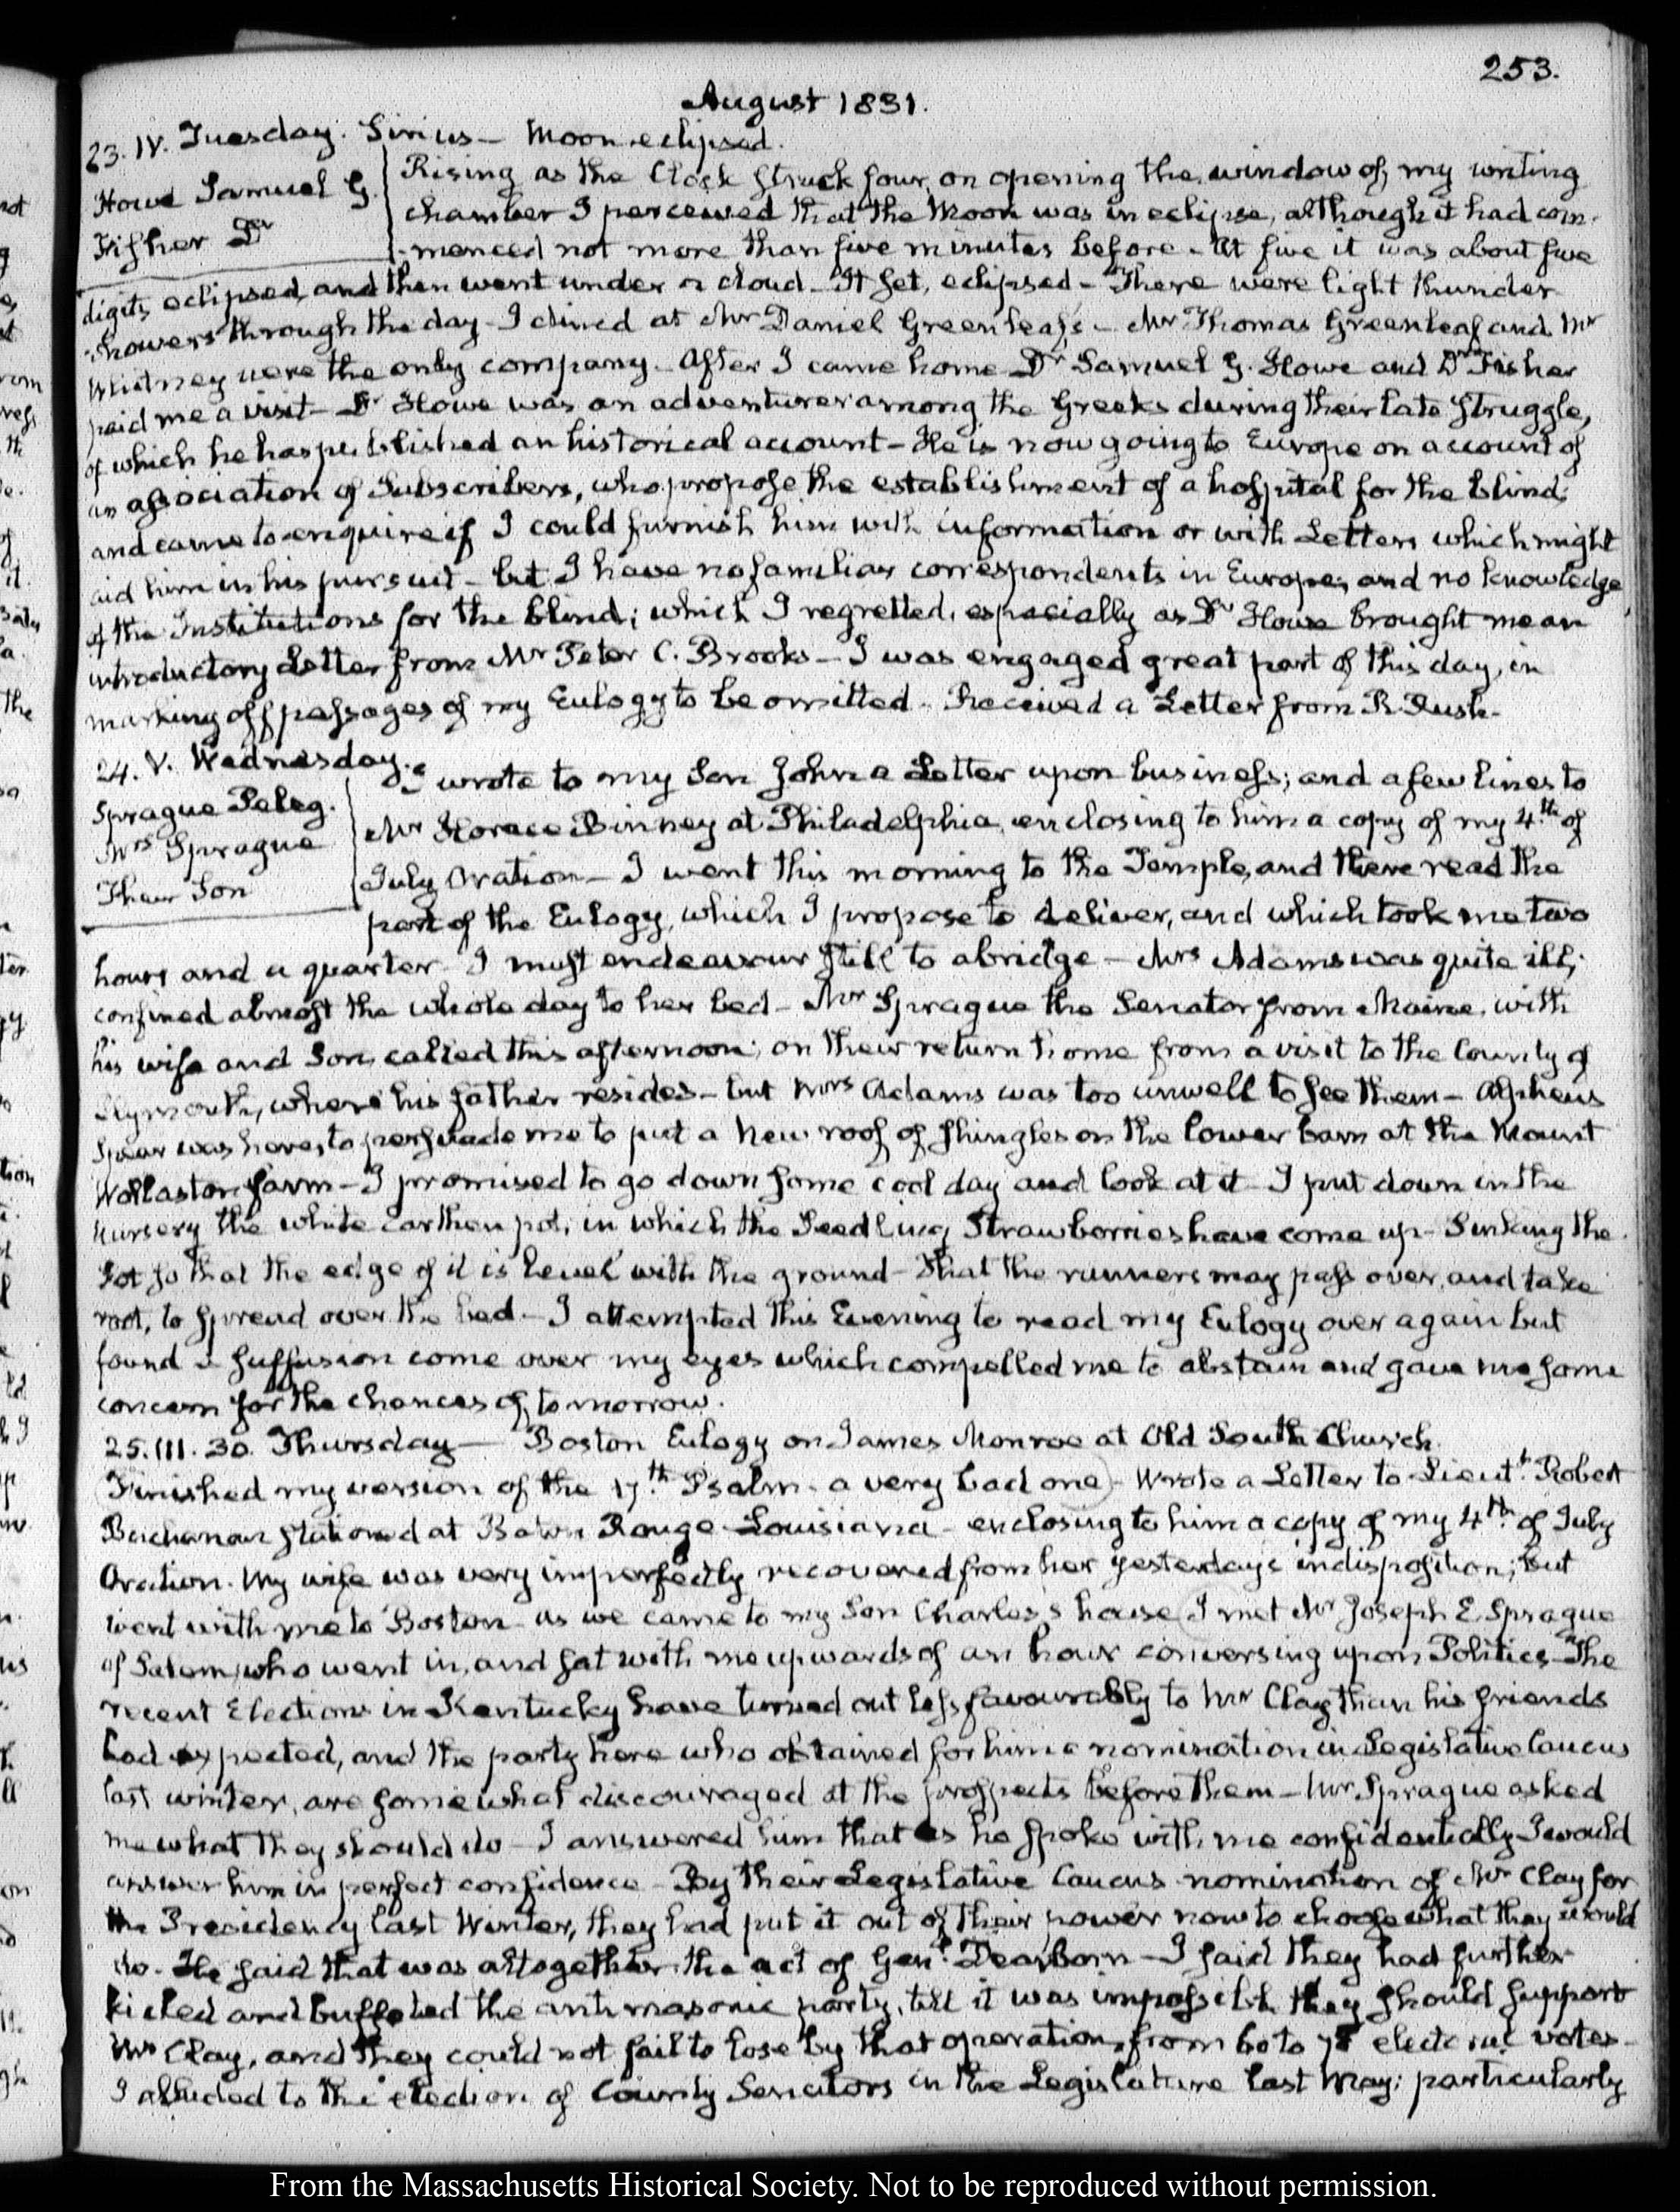 253.
August 1831.
23. IV. Tuesday. Sirius — Moon eclipsed.
Howe Samuel G.
Fisher Dr
Rising as the Clock struck four, on opening the window of my writing
chamber I perceived that the Moon was in eclipse, although it had com-
-menced not more than five minutes before - At five it was about five
digits eclipsed, and then went under a cloud - It set, eclipsed - There were light thunder
showers through the day - I dined at Mr Daniel Greenleaf's - Mr Thomas Greenleaf and Mr
Whitney were the only company - After I came home Dr Samuel G. Howe and Dr Fisher
paid me a visit - Dr Howe was an adventurer among the Greeks during their late struggle,
of which he has published an historical account - He is now going to Europe on account of
an association of Subscribers, who propose the establishment of a hospital for the blind;
and came to enquire if I could furnish him with information or with Letters which might
aid him in his pursuit - but I have no familiar correspondents in Europe, and no knowledge
of the Institutions for the blind; which I regretted, especially as Dr Howe brought me an
introductory Letter from Mr Peter C. Brooks - I was engaged great part of this day, in
marking off passages of my Eulogy to be omitted - Received a Letter from R. Rush.
24. V. Wednesday.
Sprague Peleg.
Mrs Sprague
Their Son
I wrote to my Son John a Letter upon business; and a few lines to
Mr Horace Binney at Philadelphia, enclosing to him a copy of my 4th of
July Oration - I went this morning to the Temple, and there read the
part of the Eulogy, which I propose to deliver, and which took me two
hours and a quarter - I must endeavour still to abridge - Mrs Adams was quite ill;
confined almost the whole day to her bed - Mr Sprague the Senator from Maine, with
his wife and Son, called this afternoon; on their return home from a visit to the County of
Plymouth, where his father resides - but Mrs Adams was too unwell to see them - Alpheus
Spear was here, to persuade me to put a new roof of shingles on the lower barn at the Mount
Wollaston farm - I promised to go down some cool day and look at it - I put down in the
Nursery the white earthen pot, in which the Seedling Strawberries have come up - Sinking the
Pot so that the edge of it is level with the ground - that the runners may pass over, and take
root, to spread over the bed - I attempted this Evening to read my Eulogy over again but
found a suffusion come over my eyes which compelled me to abstain and gave me some
concern for the chances of to-morrow.
25. III. 30. Thursday — Boston Eulogy on James Monroe at Old South Church.
Finished my version of the 17th Psalm - a very bad one - Wrote a Letter to Lieutt Robert
Buchanan stationed at Baton Rouge Louisiana - enclosing to him a copy of my 4th of July
Oration. My wife was very imperfectly recovered from her yesterday's indisposition; but
went with me to Boston - as we came to my Son Charles's house I met Mr Joseph E. Sprague
of Salem, who went in, and sat with me upwards of an hour conversing upon Politics - The
recent Elections in Kentucky have turned out less favourably to Mr Clay than his friends
had expected, and the party here who obtained for him a nomination in Legislative Caucus
last winter, are somewhat discouraged at the prospects before them - Mr Sprague asked
me what they should do - I answered him that as he spoke with me confidentially I would
answer him in perfect confidence - By their Legislative Caucus nomination of Mr Clay for
the Presidency last Winter, they had put it out of their power now to choose what they would
do. He said that was altogether the act of Genl Dearborn - I said they had further
kicked and buffeted the antimasonic party, till it was impossible they should support
Mr Clay, and they could not fail to lose by that operation, from 60 to 75 electoral votes -
I alluded to the election of County Senators in the Legislature last May; particularly
From the Massachusetts Historical Society. Not to be reproduced without permission.